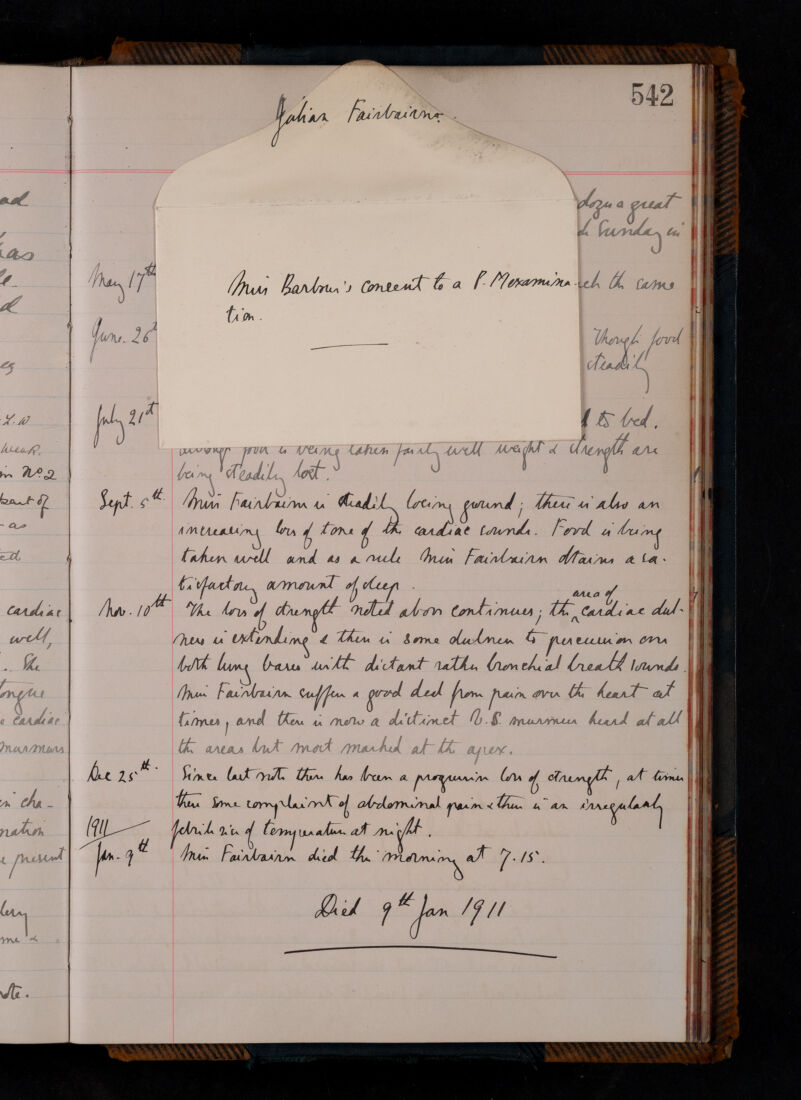 542
Julian Fairbairn.
Miss Barbour's consent to a P. Mexamina
tion.
doze a great
Sunday in
May 17th
ch the same
June. 26
Though food
steadily
July 21st
to bed.
although food is being taken fairly well weight & strength are
being steadily lost.
Sept. 5th. Miss Fairbairn is steadily losing ground; there is also an
increasing loss of tone of the cardiac sounds. Food is being
taken well and as a rule Miss Fairbairn obtains a sa-
tisfactory amount of sleep.
Nov. 10th The loss of strength noted above continues; the area of cardiac dul-
ness is extending & there is some dulness to percussion over
both lung bases with distant rather bronchial breath sounds.
Miss Fairbairn suffers a good deal from pain over the heart at
times, and there is now a distinct V.S. murmur heard at all
the areas but most marked at the apex.
Dec 25th. Since last note there has been a progressive loss of strength, at times
there some complaint of abdominal pain & there is an irregularly
1911 febrile rise of temperature at night.
Jan. 9th Miss Fairbairn died this morning at 7.15.
Died 9th Jan 1911
ad
has
d
weak.
in No 2
part of
as
ed
cardiac
well,
. The
tongue
cardiac
murmurs
in cha-
nation
present
me &
note.